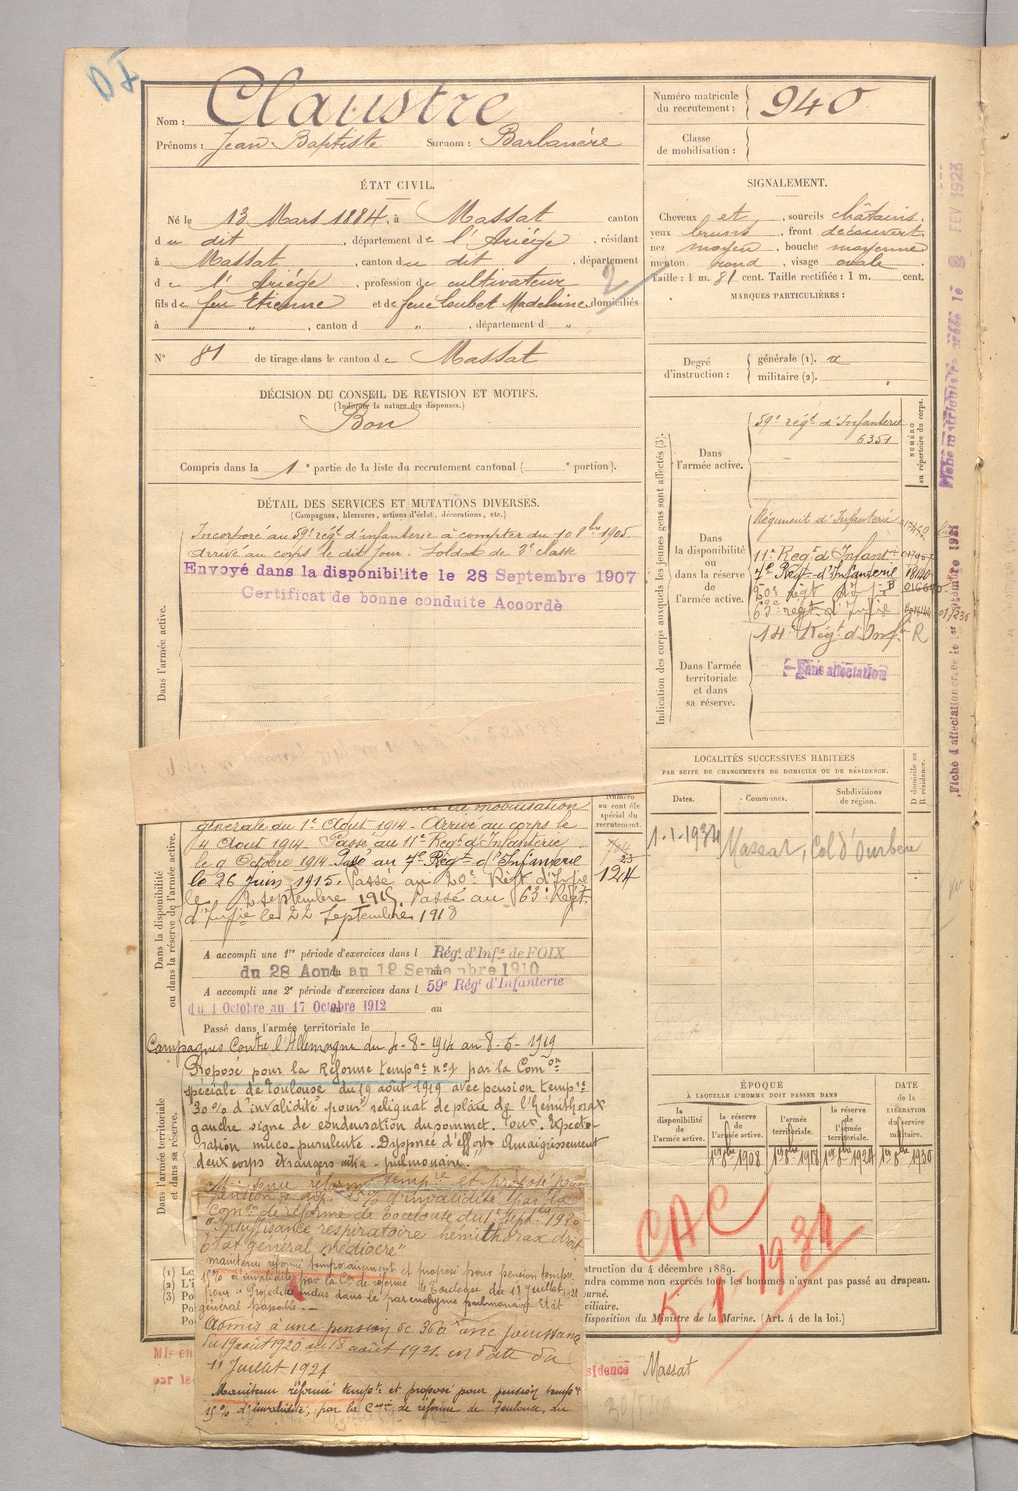 D I
Nom : Claustre
Prénoms : Jean Baptiste Surnom : Barbanère
ÉTAT CIVIL.
Né le 13 Mars 1884, à Massat canton
du dit, département de l'Ariége, résidant
à Massat, canton du dit, département
de l'Ariége, profession de cultivateur
fils de feu Etienne et de feue Loubet Madelaine domiciliés
à „ , canton d „ , département d „
N° 81 de tirage dans le canton de Massat
DÉCISION DU CONSEIL DE REVISION ET MOTIFS.
(Indiquer la nature des dispenses.)
Bon
Compris dans la 1e partie de la liste du recrutement cantonal ( e portion).
DÉTAIL DES SERVICES ET MUTATIONS DIVERSES.
(Campagnes, blessures, actions d'éclat, décorations, etc.)
Dans l'armée active.
Incorporé au 59e régt d'infanterie à compter du 10 8bre 1905
Arrivé au corps le dit jour. Soldat de 2e classe
Envoyé dans la disponibilite le 28 Septembre 1907
Certificat de bonne conduite Accordè
Dans la disponibilité
ou dans la réserve de l'armée active.
mobilisation
générale du 1er Aout 1914 - Arrivé au corps le
4 Aout 1914. Passé au 11e Régt d'Infanterie
le 9 Octobre 1914 Passé au 7e Régt d'Infanterie
le 26 Juin 1915. Passé au 20e Régt d'Infie
le 2 septembre 1915. Passé au 63e Régt
d'Infie le 22 Septembre 1918
A accompli une 1re période d'exercices dans l Régt d'Infie de FOIX
du 28 Aout au 18 Septembre 1910
A accompli une 2e période d'exercices dans l 59e Régt d'Infanterie
du 1 Octobre au 17 Octobre 1912 au
Passé dans l'armée territoriale le
Campagnes Contre l'Allemagne du 4-8-1914 au 8-5-1919
Dans l'armée territoriale
et dans sa réserve.
Proposé pour la Réforme tempre n°1 par la Comon
spéciale de Toulouse du 19 août 1919 avec pension tempre
30% d'invalidité pour reliquat de plaie de l'hémithorax
gauche signe de condensation du sommet. Toux. Expecto-
ration muco-purulente. Dyspnée d'effort Amaigrissement
deux corps étrangers intra-pulmonaire.
Maintenu réformé tempre et proposé pour
pension d'invalidité par la
Comon de réforme de Toulouse du 1er Septbre 1920
"Insuffisance respiratoire hémithorax droit
Etat général médiocre"
maintenu réformé temporairement et proposé pour pension tempre
15% d'invalidité par la Con de réforme de Toulouse du 11 Juillet 1921
pour 2 projectiles inclus dans le parenchyme pulmonaire Etat
général passable.-
Admis à une pension de 360f avec jouissance
du 19 août 1920 au 18 août 1921. en date du
11 Juillet 1921
Maintenu réformé tempt et proposé pour pension tempre
15% d'invalidité, par la Cion de réforme de Toulouse, du
Numéro matricule
du recrutement : 940
Classe
de mobilisation :
SIGNALEMENT.
Cheveux et , sourcils châtains
yeux bruns , front découvert
nez moyen , bouche moyenne
menton rond , visage ovale
2
Taille : 1 m. 81 cent. Taille rectifiée : 1 m. cent.
MARQUES PARTICULIÈRES :
Degré
d'instruction : générale (1).
militaire (2).
Indication des corps auxquels les jeunes gens sont affectés (3).
NUMÉRO
au répertoire du corps.
Dans
l'armée active.
59e régt d'Infanterie
6351
Dans
la disponibilité
ou
dans la réserve
de
l'armée active.
Régiment d'Infanterie
11e Régt d'Infantrie
7e Régt d'Infanterie
20e régt d'Infie
63e régt d'Infie
14 Régt d'Infie R
Dans l'armée
territoriale
et dans
sa réserve.
Sans affectation
LOCALITÉS SUCCESSIVES HABITÉES
PAR SUITE DE CHANGEMENTS DE DOMICILE OU DE RÉSIDENCE.
D domicile ou
R résidence.
Dates. Communes. Subdivisions
de région.
1-1-1934 Massat, Col d'Ourbere
Numéro
au contrôle
spécial du
recrutement.
23
124
ÉPOQUE
À LAQUELLE L'HOMME DOIT PASSER DANS
DATE
de la
LIBÉRATION
du service
militaire.
la
disponibilité
de l'armée active.
la réserve
de
l'armée active.
l'armée
territoriale.
la réserve
de
l'armée
territoriale.
1er 8bre 1908 1er 8bre 1918 1er 8bre 1924 1er 8bre 1930
CAC
5 1 1934
(1) Le
(2) L'i
(3) Po
Po
Po
struction du 4 décembre 1889.
ndra comme non exercés tous les hommes n'ayant pas passé au drapeau.
ourné.
ciliaire.
disposition du Ministre de la Marine. (Art. 4 de la loi.)
Mis en
par le
sidence Massat
Fiche d'affectation créée le 1er Septembre 1921
Fiche matricule
FEV 1923